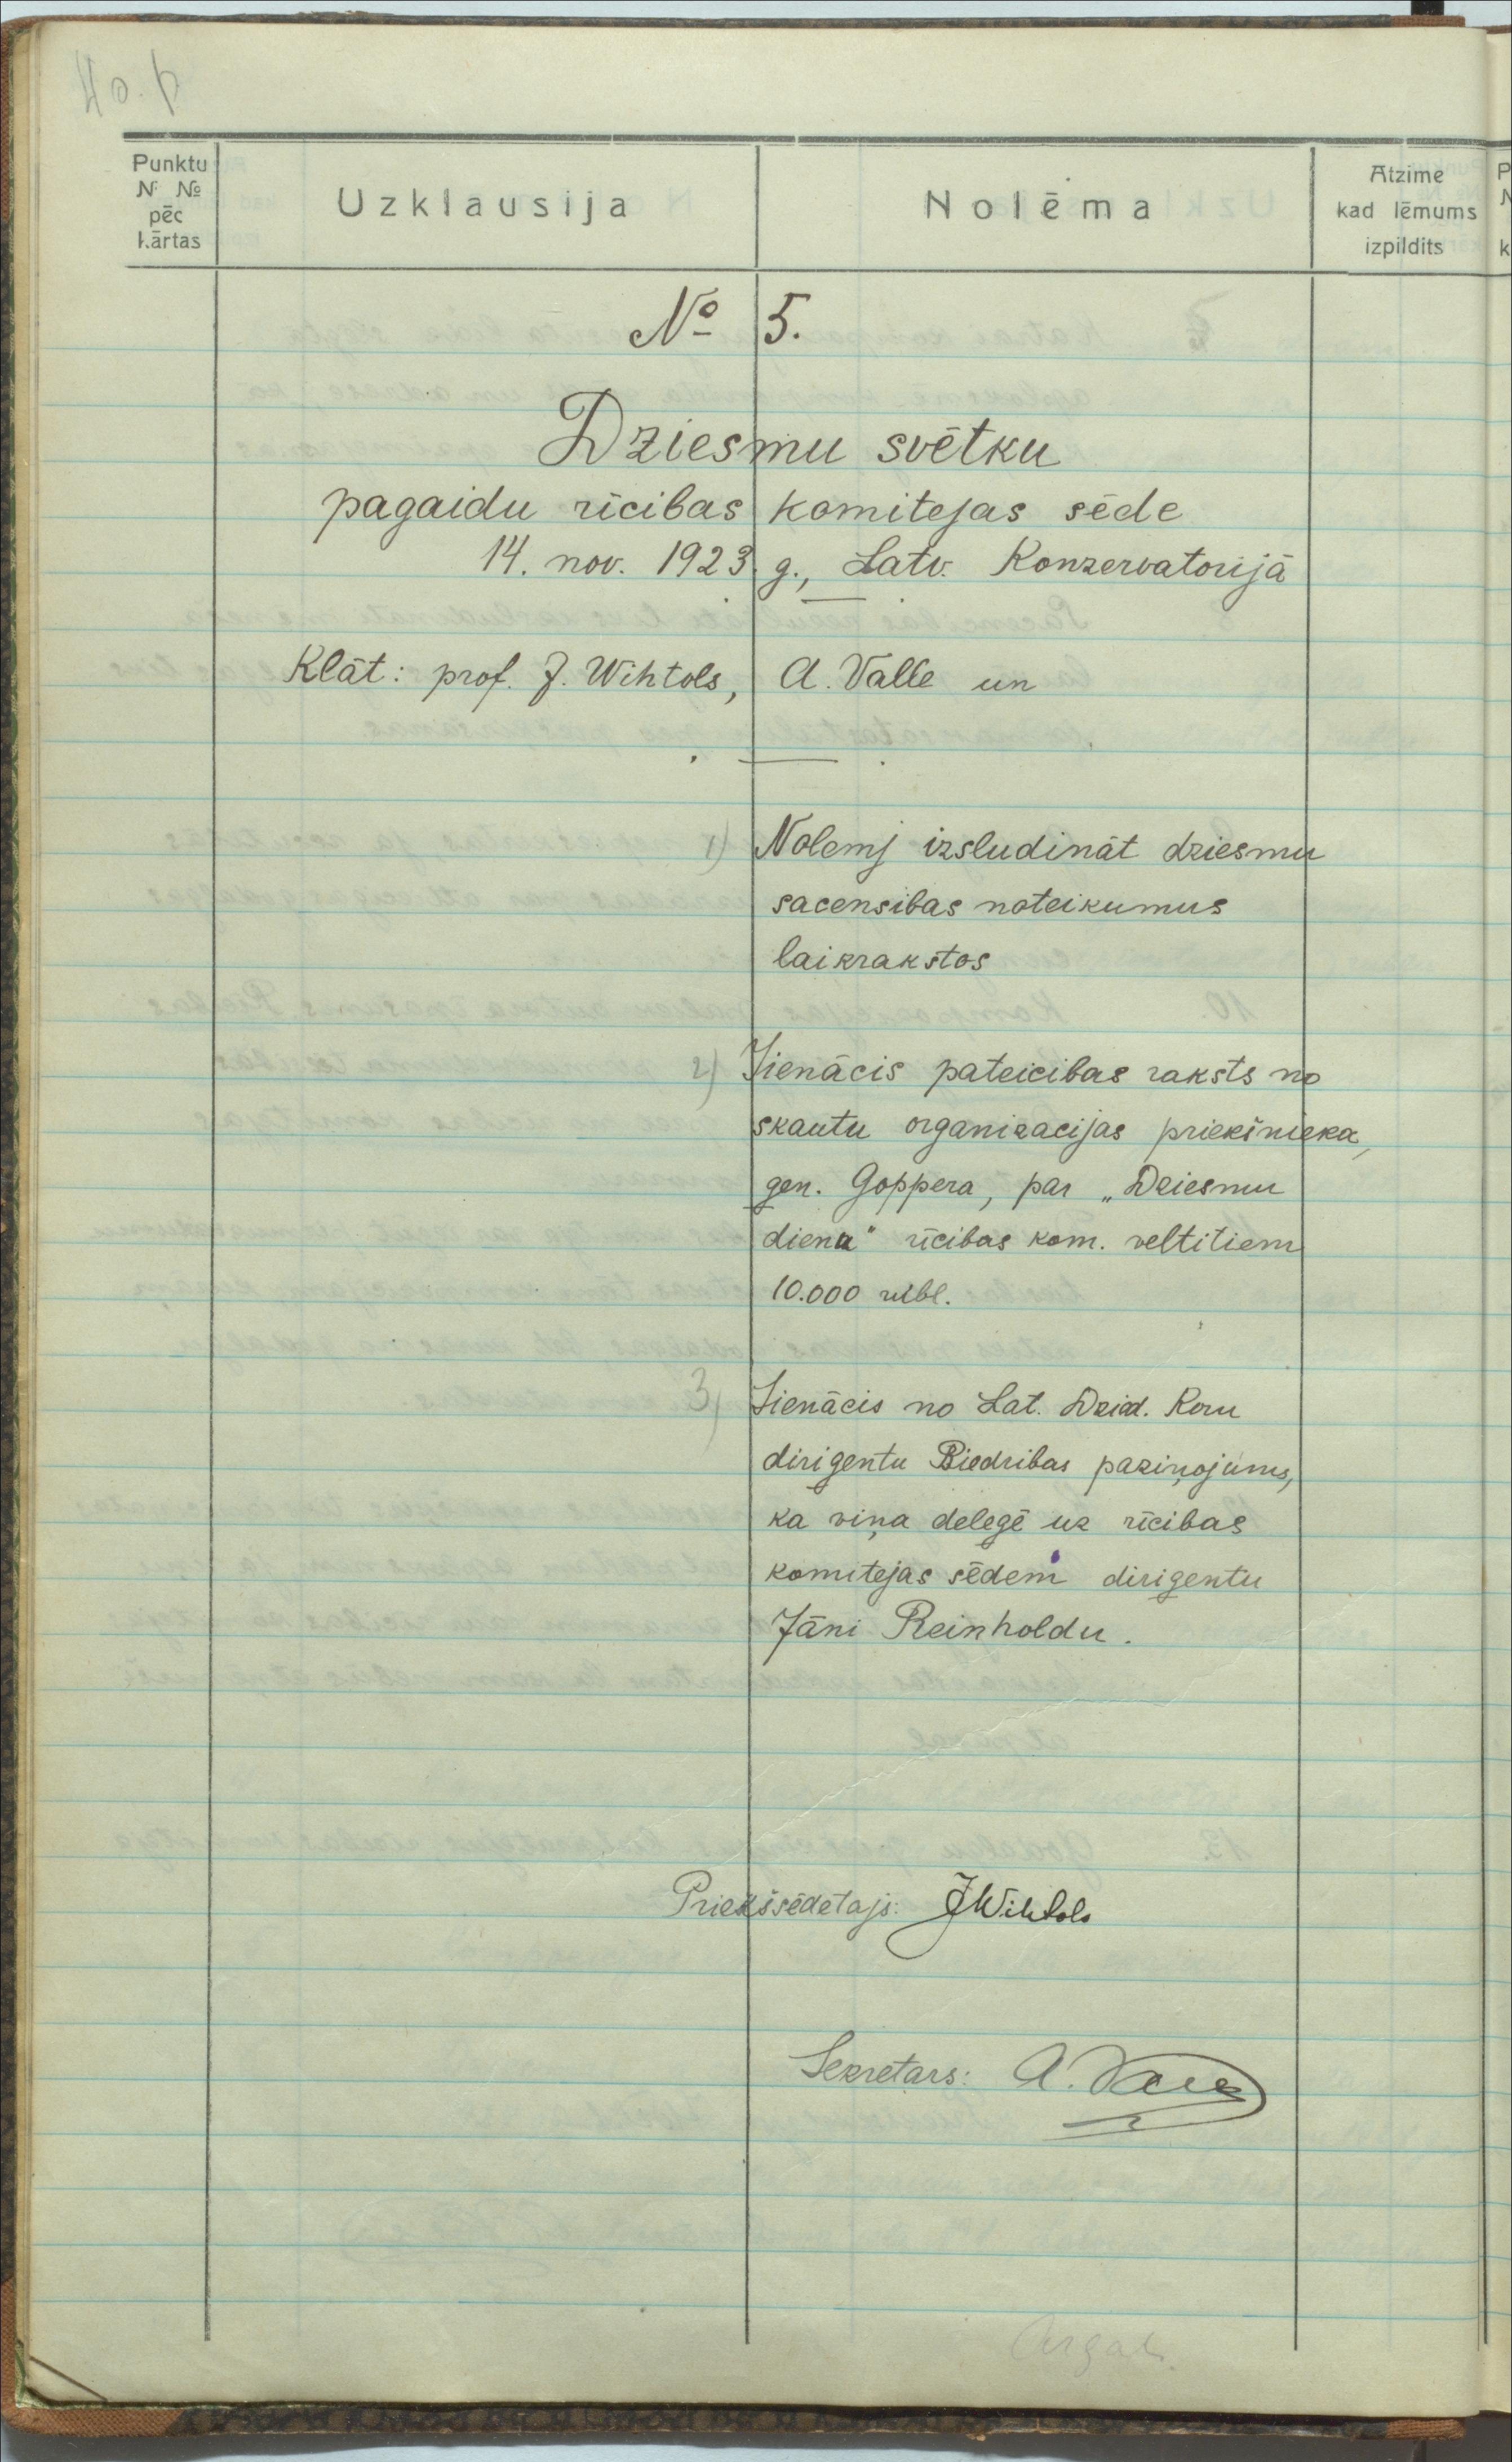 40. p
Punktu № № pēc kārtas
Uzklausija
Nolēma
Atzime kad lēmums izpildits
№ 5.
Dziesmu svētku
pagaidu rīcibas komitejas sēde
14. nov. 1923. g., Latv. Konzervatorijā
Klāt: prof. J. Wihtols, A. Valle un
1) Nolemj izsludināt dziesmu
sacensibas noteikumus
laikrakstos
2) Jienācis pateicibas raksts no
skautu organizacijas priekšnieka,
gen. Goppera, par „Dziesmu
diena" rīcibas kom. veltitiem
10.000 rubl.
3) Jienācis no Lat. Dzied. Koru
dirigentu Biedribas paziņojums,
ka viņa delegē uz rīcibas
komitejas sēdem dirigentu
Jāni Reinholdu.
Priekšsēdētajs: JWihtols
Sekretars: A. Valle